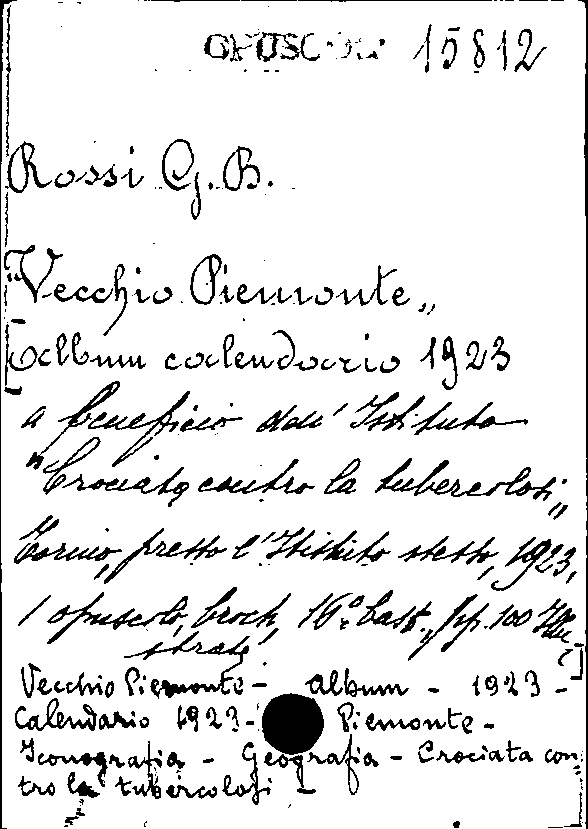 OPUSCOLI 15812
Rossi G. B.
"Vecchio Piemonte„
album calendario 1923
a beneficio dell'Istituto
"Crociata contro la tubercolosi„
Torino, presso l'Istituto stesso, 1923,
1 opuscolo, broch, 16° bast., pp. 100 Illu
strato
Vecchio Piemonte - album - 1923 -
Calendario 1923 - Piemonte -
Iconografia - Geografia - Crociata con
tro la tubercolosi -